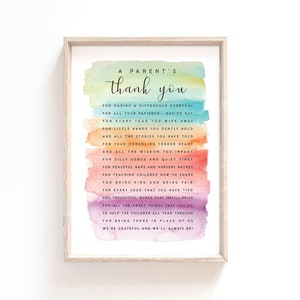 A PARENT'S
thank you
FOR MAKING A DIFFERENCE EVERYDAY
FOR ALL YOUR PATIENCE, DAY TO DAY
FOR EVERY TEAR YOU WIPE AWAY
FOR LITTLE HANDS YOU GENTLY HOLD
AND ALL THE STORIES YOU HAVE TOLD
FOR YOUR CONSOLING TENDER HEART
AND ALL THE WISDOM YOU IMPART
FOR SILLY SONGS AND QUIET TIMES
FOR PEACEFUL NAPS AND NURSERY RHYMES
FOR TEACHING CHILDREN HOW TO SHARE
FOR BEING KIND AND BEING FAIR
FOR EVERY SHOE THAT YOU HAVE TIED
AND THOUGHTFUL WORDS THAT INSTILL PRIDE
FOR ALL THE SWEET THINGS THAT YOU DO
TO HELP THE CHILDREN ALL YEAR THROUGH
FOR BEING THERE IN PLACE OF US
WE'RE GRATEFUL AND WE'LL ALWAYS BE!